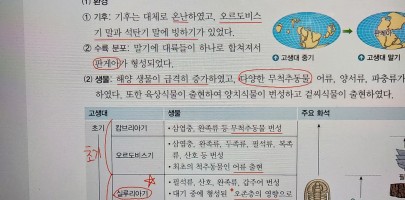 (1) 환경
① 기후: 기후는 대체로 온난하였고, 오르도비스
기 말과 석탄기 말에 빙하기가 있었다.
② 수륙 분포: 말기에 대륙들이 하나로 합쳐져서
판게아가 형성되었다.
고생대 중기
고생대 말기
(2) 생물: 해양 생물이 급격히 증가하였고, 다양한 무척추동물, 어류, 양서류, 파충류가
하였다. 또한 육상 식물이 출현하여 양치식물이 번성하고 겉씨식물이 출현하였다.
고생대
생물
주요 화석
초기
캄브리아기
• 삼엽충, 완족류 등 무척추동물 번성
오르도비스기
• 삼엽충, 완족류, 두족류, 필석류, 복족
류, 산호 등 번성
• 최초의 척추동물인 어류 출현
실루리아기
• 필석류, 산호, 완족류, 갑주어 번성
• 대기 중에 형성된 오존층의 영향으로